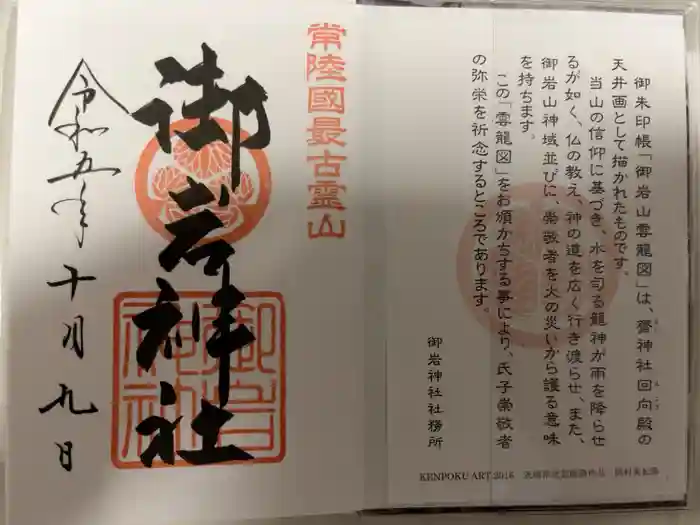 御朱印帳「御岩山雲龍図」は、齋神社回向殿の
天井画として描かれたものです。
当山の信仰に基づき、水を司る龍神が雨を降らせ
るが如く、仏の教え、神の道を広く行き渡らせ、また、
御岩山神域並びに、崇敬者を火の災いから護る意味
を持ちます。
この「雲龍図」をお頒かちする事により、氏子崇敬者
の弥栄を祈念するところであります。
御岩神社社務所
KENPOKU ART 2016 茨城県北芸術祭作品 岡村美紀
常陸國最古霊山
御岩神社
御岩神社
令和五年十月九日